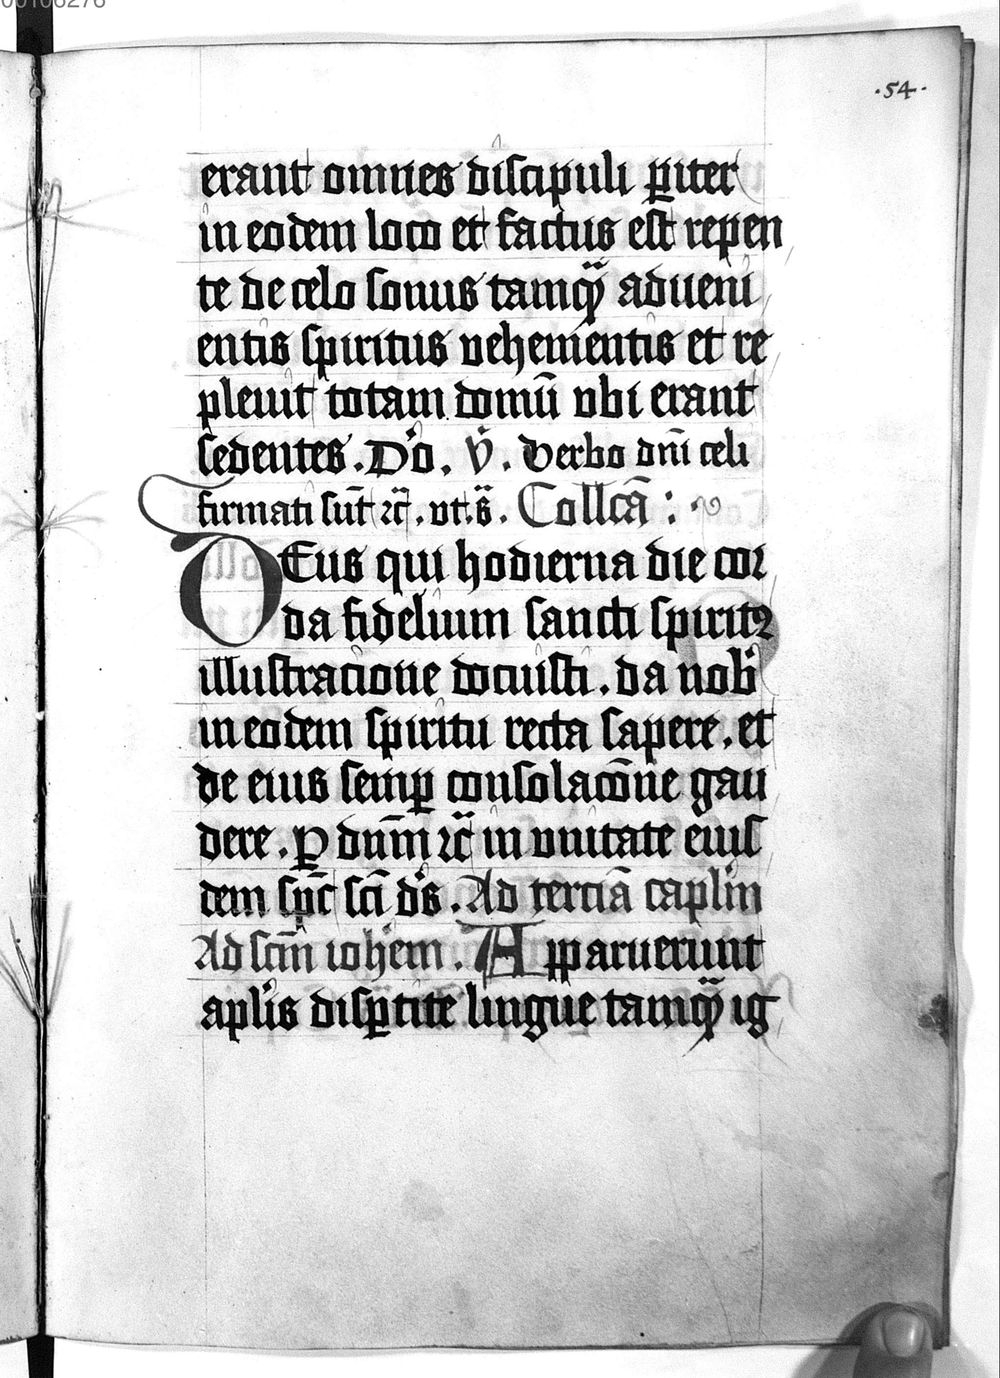 00106276
·54·
erant omnes discipuli ꝑiter
in eodem loco et factus est repen
te de celo sonus tamqͣ adueni
entis spiritus vehementis et re
pleuit totam domū vbi erant
sedentes. Do. v̄. Verbo dn̄i celi
firmati sūt ⁊c̄. vt.s̄. Collcā :
Deus qui hodierna die cor
da fidelium sancti spiritꝰ
illustracione docuisti. da nob̄
in eodem spiritu recta sapere. et
de eius semꝑ consolacōne gau
dere. ꝑ dnm̄ ⁊c̄ in vnitate eius
dem spūc sc̄i d̓s. Ad terciā caplm̄
Ad scm̄ ioh̄em. Apparuerunt
apl̓is disꝑtite lingue tamqͣ ig